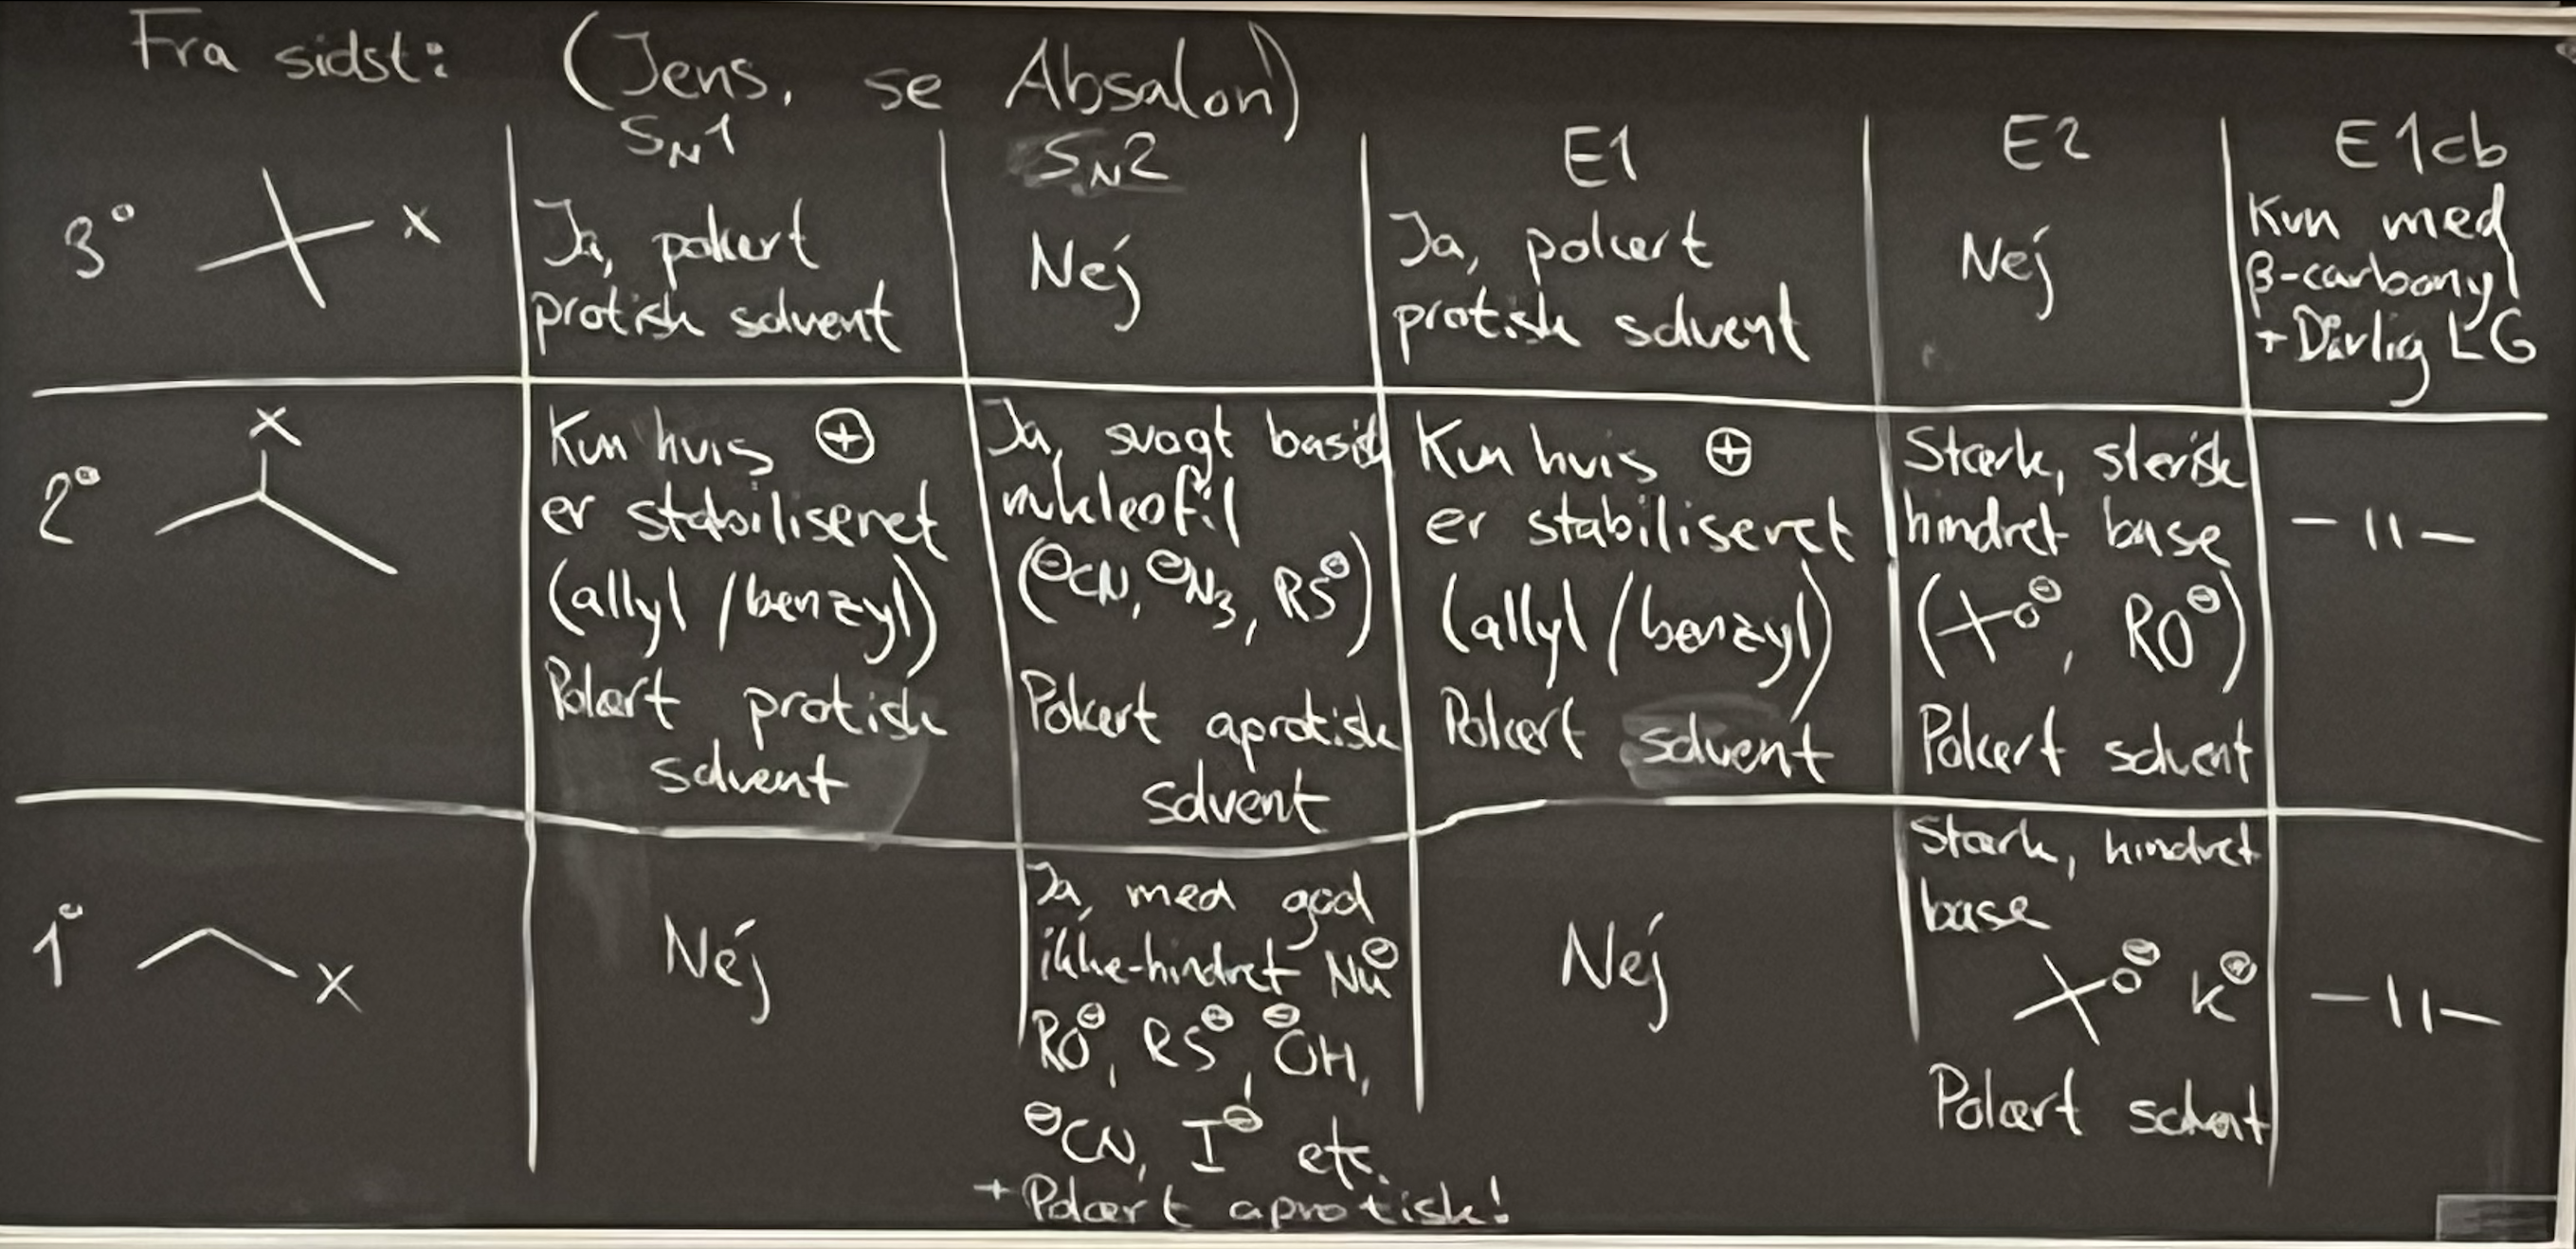 Fra sidst: (Jens, se Absalon)
SN1
SN2
E1
E2
E1cb
3° X
Ja, polært
protisk solvent
Nej
Ja, polært
protisk solvent
Nej
Kun med
β-carbonyl
+ Dårlig LG
2° X
Kun hvis ⊕
er stabiliseret
(allyl/benzyl)
Polært protisk
solvent
Ja, svagt basisk
nukleofil
(⊖CN, ⊖N3, RS⊖)
Polært aprotisk
solvent
Kun hvis ⊕
er stabiliseret
(allyl/benzyl)
Polært solvent
Stærk, sterisk
hindret base
(O⊖, RO⊖)
Polært solvent
-11-
1° X
Nej
Ja, med god
ikke-hindret Nu⊖
RO⊖, RS⊖, ⊖OH,
⊖CN, I⊖ etc.
+ Polært aprotisk!
Nej
Stærk, hindret
base
O⊖ K⊕
Polært solvent
-11-